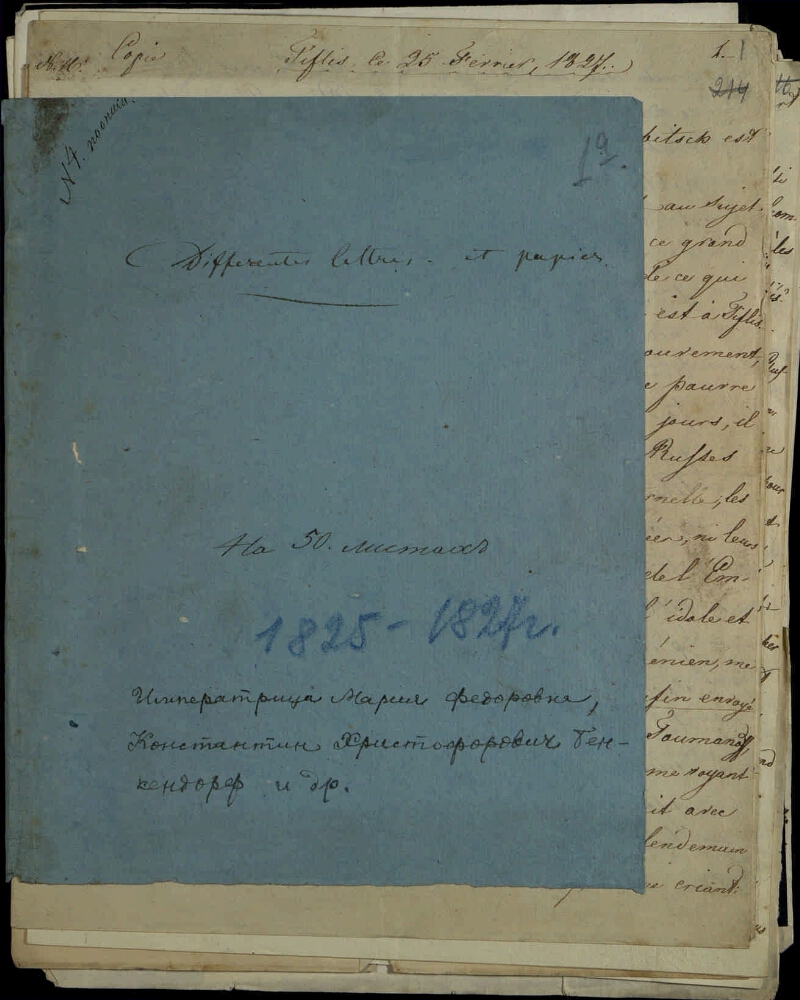 Copie
Tiflis, le 25 Février, 1827.
1.
1
214
N 4.
1a.
Differentes lettres et papiers
На 50. листахъ
1825-1827г.
Императрица Мария Федоровна,
Константин Христофорович Бен-
кендорф и др.
bitsch est
au sujet
ce grand
de ce qui
est à Tiflis.
ouvrement,
pauvre
jours, il
Russes
rnelle, les
ier, ni leurs
de l'Em-
l'idole et
énien, me
fin envoyé
me voyant
it avec
lendemain
criant: